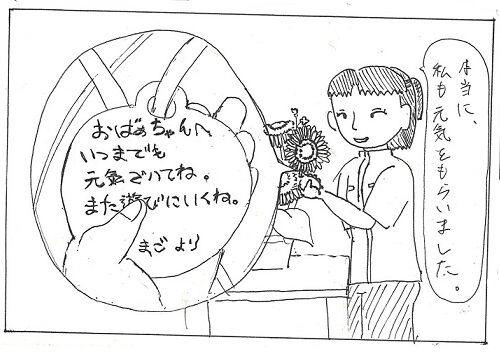 本当に、
私も元気をもらいました。
おばあちゃんへ
いつまでも
元気でいてね。
また遊びにいくね。
まごより